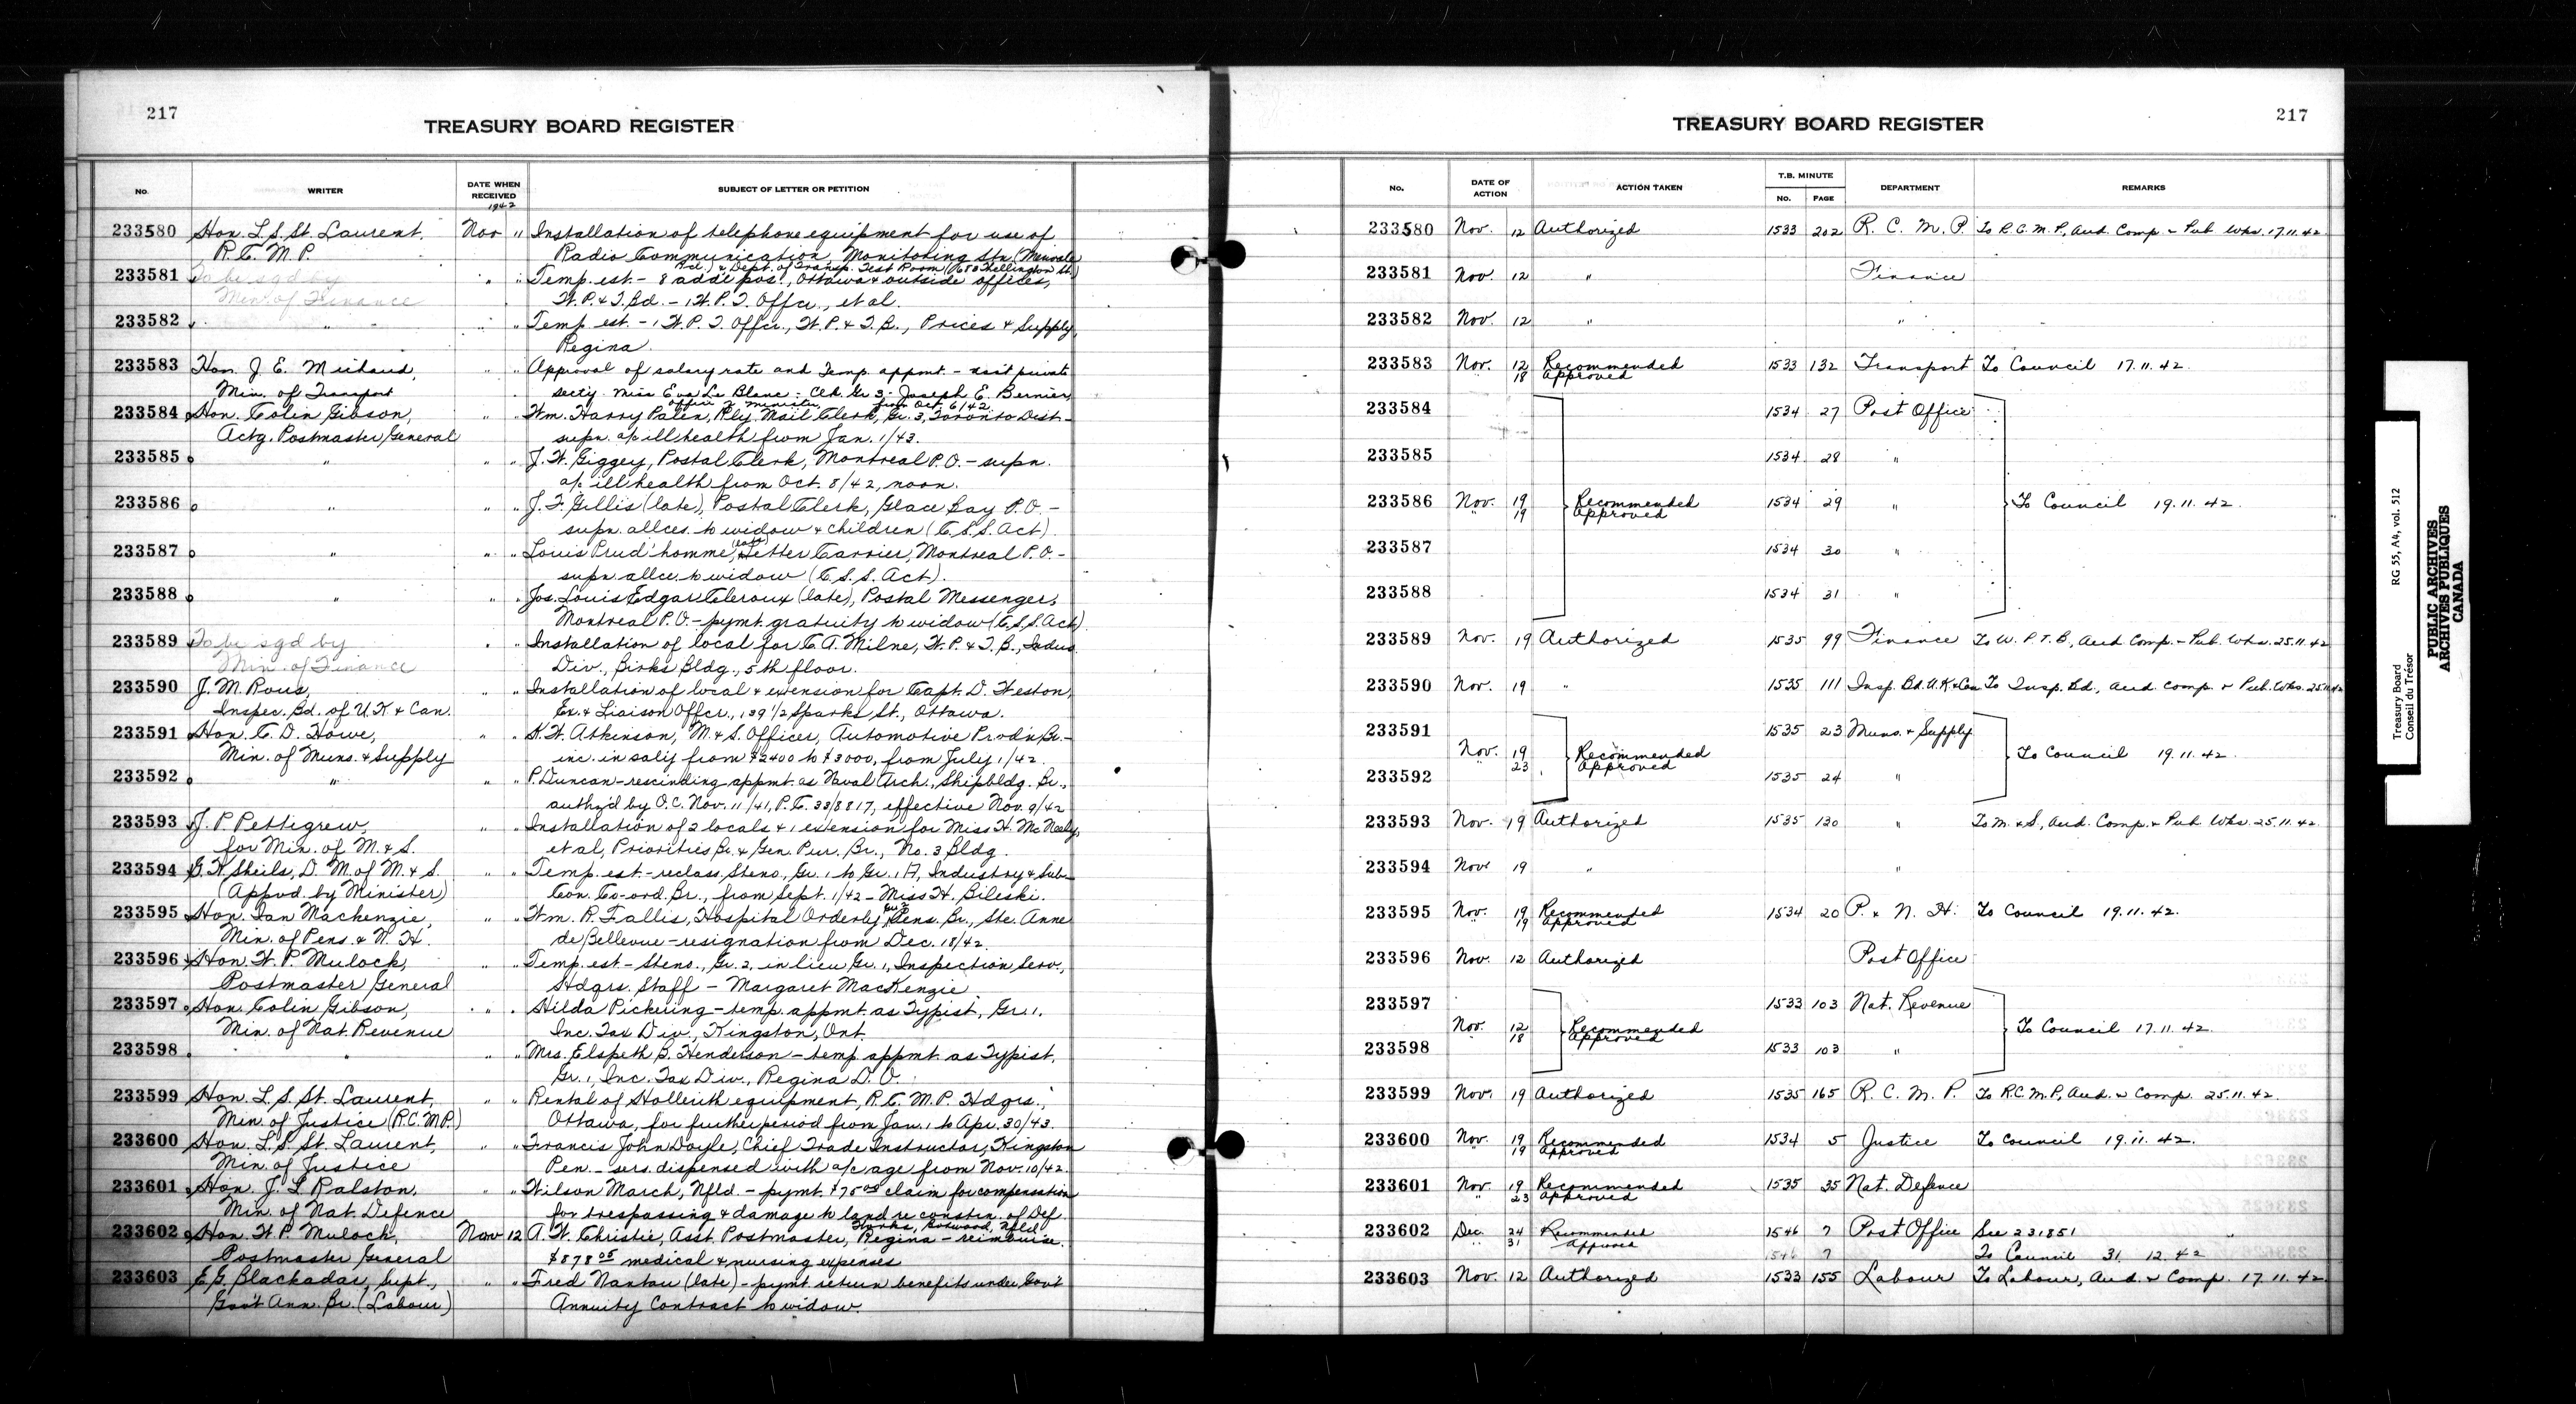 217
TREASURY BOARD REGISTER
No.
WRITER
DATE WHEN RECEIVED
1942
SUBJECT OF LETTER OR PETITION
233580 Hon. L. S. St. Laurent, Nov " Installation of telephone equipment for use of
R. C. M. P. Radio Communication, Monitoring Stn (Merivale
Rd.) & Dept. of Transp. Test Room (680 Wellington St.)
233581 To be sgd by " " Temp. est. - 8 add'l pos., Ottawa & outside offices,
Min. of Finance W. P. & T. Bd. - 1 W. P. T. Offcr., et al.
233582 " " " Temp. est. - 1 W. P. T. Offcr., W. P. & T. B., Prices & Supply,
Regina.
233583 Hon. J. E. Michaud, " " Approval of salary rate and Temp. appmt. - asst private
Min. of Transport secty. Miss Eva Le Blanc - Clk. Gr 3 - Joseph E. Bernier,
office of minister, from Oct. 6/42.
233584 Hon. Colin Gibson, " " Wm. Harry Palen, Rly. Mail Clerk, Gr. 3, Toronto Dist. -
Actg. Postmaster General supn. a/c ill health from Jan. 1/43.
233585 " " " J. W. Giggey, Postal Clerk, Montreal P.O. - supn.
a/c ill health from Oct. 8/42, noon.
233586 " " " J. F. Gillis (late), Postal Clerk, Glace Bay P.O. -
supn. allces. to widow & children (C.S.S. Act).
233587 " " " Louis Prud'homme, (late) Letter Carrier, Montreal P.O. -
supn. allce. to widow (C.S.S. Act).
233588 " " " Jos. Louis Edgar Cleroux (late), Postal Messenger,
Montreal P.O. - pymt. gratuity to widow (C.S.S. Act).
233589 To be sgd by " " Installation of local for C. A. Milne, W. P. & T. B., Indus.
Min. of Finance Div., Birks Bldg., 5th floor.
233590 J. M. Rous, " " Installation of local & extension for Capt. D. Weston,
Inspec. Bd. of U.K & Can. Ex. & Liaison Offcr., 139 1/2 Sparks St., Ottawa.
233591 Hon. C. D. Howe, " " K. W. Atkinson, M. & S. Officer, Automotive Prod'n Br. -
Min. of Muns. & Supply inc. in sal'y from $2400 to $3000, from July 1/42.
233592 " " " P. Duncan - rescinding appmt. as Naval Arch., Shipbldg. Br.,
auth'z'd by O.C. Nov. 11/41, P.C. 33/8817, effective Nov. 9/42
233593 J. P. Pettigrew, " " Installation of 2 locals & 1 extension for Miss H. McNeely,
for Min. of M. & S. et al, Priorities Br. & Gen. Pur. Br., No. 3 Bldg.
233594 G. K. Sheils, D. M. of M. & S. " " Temp. est. - reclass. Steno., Gr. 1 to Gr. 1A, Industry & Sub-
(Appvd. by Minister) Con. Co-ord. Br., from Sept. 1/42 - Miss H. Bileski.
233595 Hon. Ian Mackenzie, " " Wm. R. Fallis, Hospital Orderly, Gr. 2, Pens. Br., Ste. Anne
Min. of Pens. & N. H. de Bellevue - resignation from Dec. 18/42.
233596 Hon. W. P. Mulock, " " Temp. est. - Steno., Gr. 2, in lieu Gr. 1, Inspection Serv.,
Postmaster General Hdqrs. Staff - Margaret MacKenzie
233597 Hon. Colin Gibson, " " Hilda Pickering - temp. appmt. as Typist, Gr. 1,
Min. of Nat. Revenue Inc. Tax Div., Kingston, Ont.
233598 " " " Mrs. Elspeth B. Henderson - temp. appmt. as Typist,
Gr. 1, Inc. Tax Div., Regina D. O.
233599 Hon. L. S. St. Laurent, " " Rental of Hollerith equipment, R. C. M. P. Hdqrs.,
Min. of Justice (R.C.M.P.) Ottawa, for further period from Jan. 1 to Apr. 30/43.
233600 Hon. L. S. St. Laurent, " " Francis John Doyle, Chief Trade Instructor, Kingston
Min. of Justice Pen. - sers. dispensed with a/c age from Nov. 10/42.
233601 Hon. J. L. Ralston, " " Wilson March, Nfld. - pymt. $75.00 claim for compensation
Min. of Nat. Defence for trespassing & damage to land re constrn. of Def.
Works, Botwood, Nfld.
233602 Hon. W. P. Mulock, Nov 12 A. W. Christie, Asst. Postmaster, Regina - reimburse.
Postmaster General $878.05 medical & nursing expenses
233603 E. G. Blackadar, Supt., " " Fred Nantau (late) - pymt. return benefits under Gov't
Gov't Ann. Br. (Labour) Annuity Contract to widow.
TREASURY BOARD REGISTER
217
No.
DATE OF ACTION
ACTION TAKEN
T.B. MINUTE
No. PAGE
DEPARTMENT
REMARKS
233580 Nov. 12 Authorized 1533 202 R. C. M. P. To R.C.M.P., Aud. Comp. & Pub. Wks. 17.11.42
233581 Nov. 12 " Finance
233582 Nov. 12 " "
233583 Nov. 12 Recommended 1533 132 Transport To Council 17.11.42.
18 Approved
233584 1534 27 Post Office
233585 1534 28 "
233586 Nov. 19 Recommended 1534 29 " To Council 19.11.42.
" 19 Approved
233587 1534 30 "
233588 1534 31 "
233589 Nov. 19 Authorized 1535 99 Finance To W.P.T.B., Aud Comp. & Pub. Wks. 25.11.42
233590 Nov. 19 " 1535 111 Insp. Bd. U.K & Can To Insp. Bd., Aud. Comp. & Pub. Wks. 25.11.42
233591 1535 23 Muns. & Supply
Nov. 19 Recommended To Council 19.11.42.
23 Approved
233592 1535 24 "
233593 Nov. 19 Authorized 1535 130 " To M. & S., Aud. Comp. & Pub. Wks. 25.11.42.
233594 Nov. 19 " "
233595 Nov. 19 Recommended 1534 20 P. & N. H. To Council 19.11.42.
" 19 Approved
233596 Nov. 12 Authorized Post Office
233597 1533 103 Nat. Revenue
Nov. 12 Recommended To Council 17.11.42.
18 Approved
233598 1533 103 "
233599 Nov. 19 Authorized 1535 165 R. C. M. P. To R.C.M.P., Aud. & Comp. 25.11.42.
233600 Nov. 19 Recommended 1534 5 Justice To Council 19.11.42.
" 19 Approved
233601 Nov. 19 Recommended 1535 35 Nat. Defence
" 23 Approved
233602 Dec. 24 Recommended 1546 7 Post Office See 231851
31 Approved 1546 7 To Council 31.12.42
233603 Nov. 12 Authorized 1533 155 Labour To Labour, Aud. & Comp. 17.11.42
Treasury Board RG 55, A4, vol. 512
Conseil du Trésor
PUBLIC ARCHIVES
ARCHIVES PUBLIQUES
CANADA